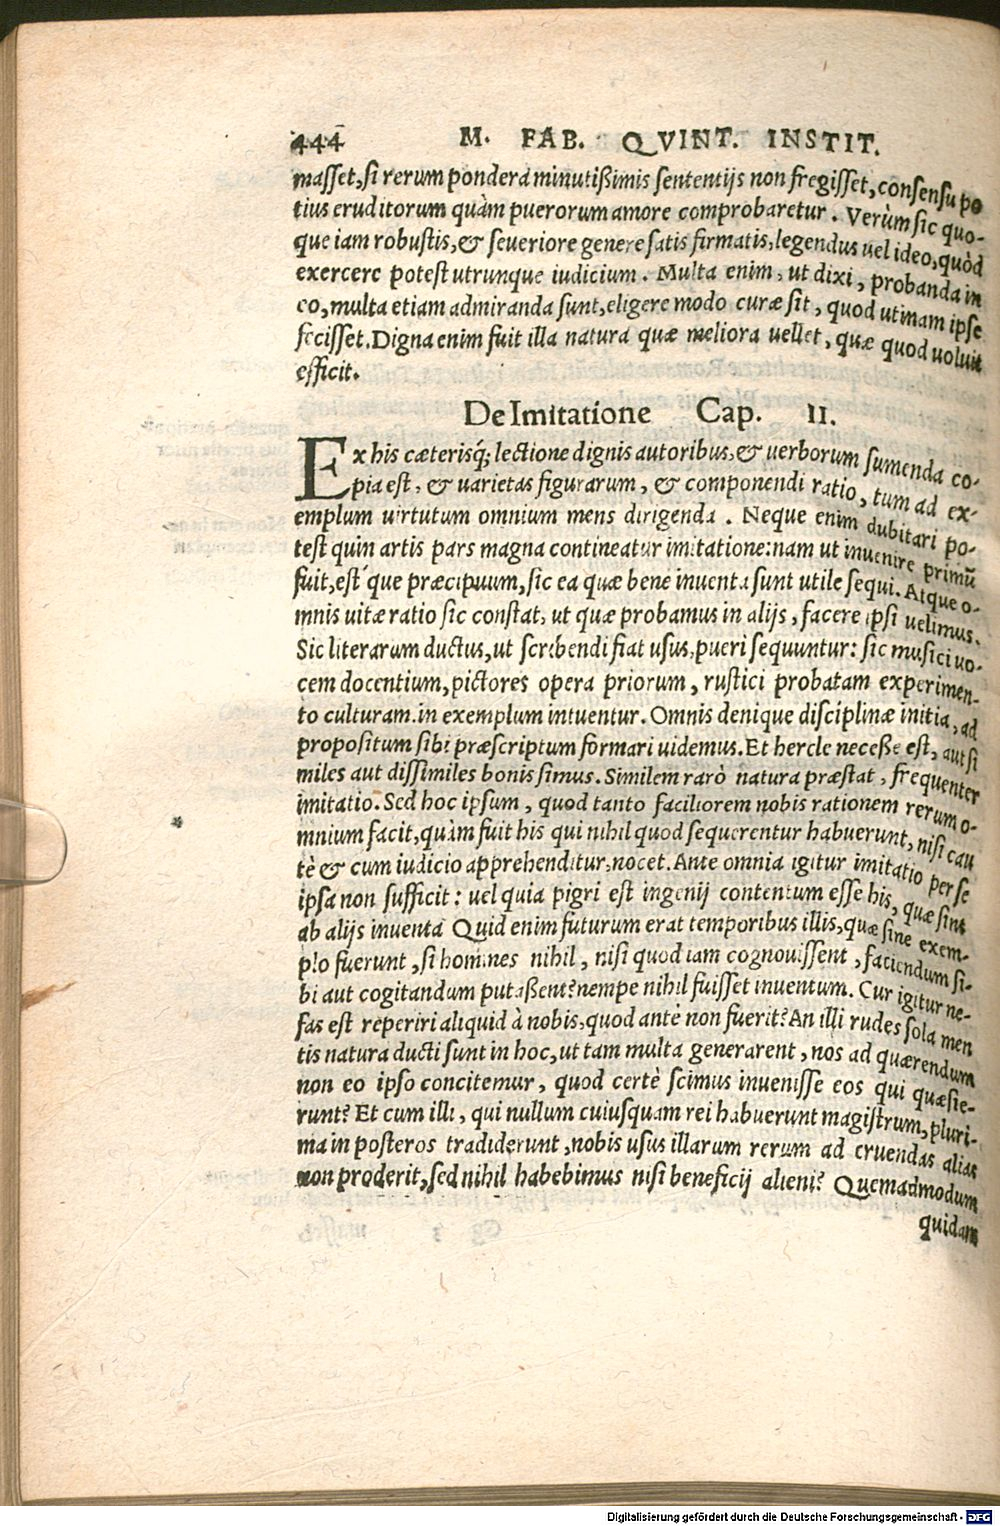 444 M. FAB. QVINT. INSTIT.
masset, si rerum pondera minutißimis sententijs non fregisset, consensu po
tius eruditorum quàm puerorum amore comprobaretur. Verùm sic quo-
que iam robustis, & seueriore genere satis firmatis, legendus uel ideo, quòd
exercere potest utrunque iudicium. Multa enim, ut dixi, probanda in
eo, multa etiam admiranda sunt, eligere modo curæ sit, quod utinam ipse
fecisset. Digna enim fuit illa natura quæ meliora uellet, quæ quod uoluit
efficit.
De Imitatione Cap. II.
Ex his cæterisq́; lectione dignis autoribus, & uerborum sumenda co-
pia est, & uarietas figurarum, & componendi ratio, tum ad ex-
emplum uirtutum omnium mens dirigenda. Neque enim dubitari po-
test quin artis pars magna contineatur imitatione: nam ut inuenire primū
fuit, est´que præcipuum, sic ea quæ bene inuenta sunt utile sequi. Atque o-
mnis uitæ ratio sic constat, ut quæ probamus in alijs, facere ipsi uelimus.
Sic literarum ductus, ut scribendi fiat usus, pueri sequuntur: sic musici uo-
cem docentium, pictores opera priorum, rustici probatam experimen-
to culturam. in exemplum intuentur. Omnis denique disciplinæ initia, ad
propositum sibi præscriptum formari uidemus. Et hercle neceße est, aut si
miles aut dissimiles bonis simus. Similem rarò natura præstat, frequenter
imitatio. Sed hoc ipsum, quod tanto faciliorem nobis rationem rerum o-
mnium facit, quàm fuit his qui nihil quod sequerentur habuerunt, nisi cau
tè & cum iudicio apprehenditur, nocet. Ante omnia igitur imitatio per se
ipsa non sufficit: uel quia pigri est ingenij contentum esse his, quæ sint
ab alijs inuenta Quid enim futurum erat temporibus illis, quæ sine exem-
plo fuerunt, si homines nihil, nisi quod iam cognouissent, faciendum si-
bi aut cogitandum putaßent? nempe nihil fuisset inuentum. Cur igitur ne-
fas est reperiri aliquid à nobis, quod antè non fuerit? An illi rudes sola men
tis natura ducti sunt in hoc, ut tam multa generarent, nos ad quærendum
non eo ipso concitemur, quod certè scimus inuenisse eos qui quæsie-
runt? Et cum illi, qui nullum cuiusquam rei habuerunt magistrum, pluri-
ma in posteros tradiderunt, nobis usus illarum rerum ad eruendas alias
non proderit, sed nihil habebimus nisi beneficij alieni? Quemadmodum
quidam
Digitalisierung gefördert durch die Deutsche Forschungsgemeinschaft - DFG